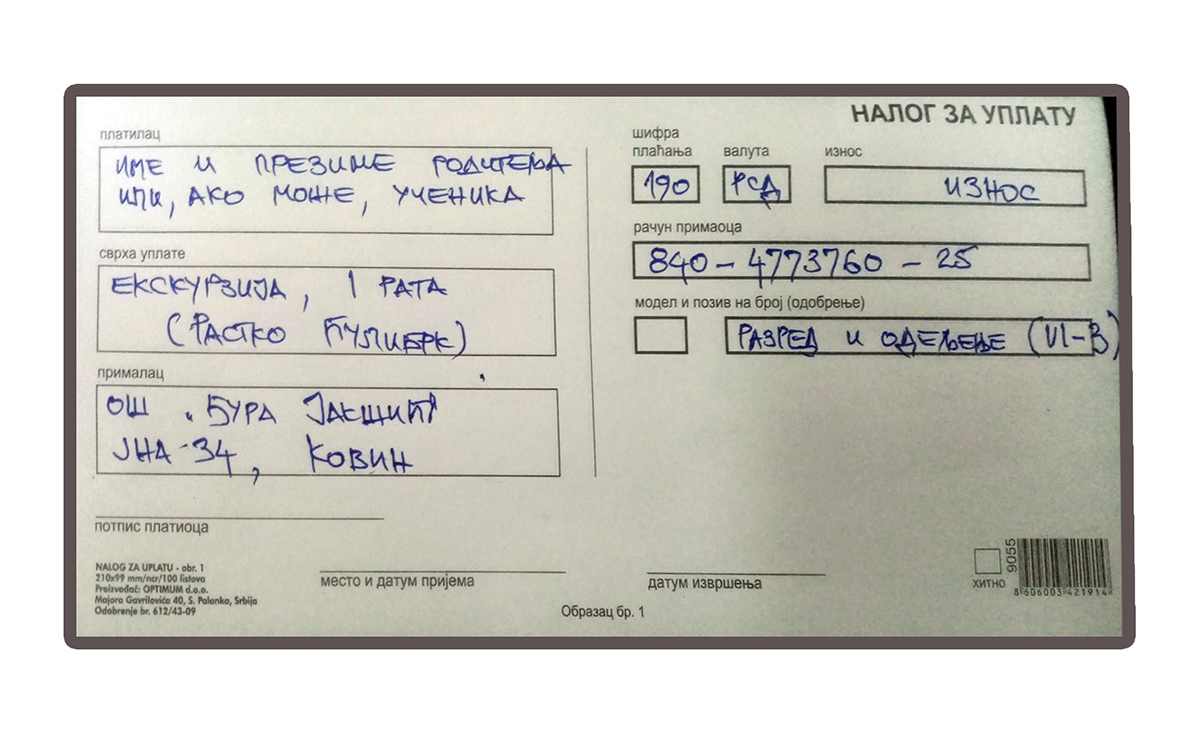 НАЛОГ ЗА УПЛАТУ
платилац
ИМЕ И ПРЕЗИМЕ РОДИТЕЉА
ИЛИ, АКО МОЖЕ, УЧЕНИКА
сврха уплате
ЕКСКУРЗИЈА, 1 РАТА
(РАСТКО ЋУЛИБРК)
прималац
ОШ „ЂУРА ЈАКШИЋ"
ЈНА-34, КОВИН
шифра
плаћања
валута
износ
190
РСД
ИЗНОС
рачун примаоца
840-4773760-25
модел и позив на број (одобрење)
РАЗРЕД И ОДЕЉЕЊЕ (VI-В)
потпис платиоца
NALOG ZA UPLATU - obr. 1
210x99 mm/ncr/100 listova
Proizvođač: OPTIMUM d.o.o.
Majora Gavrilovića 40, S. Palanka, Srbija
Odobrenje br. 612/43-09
место и датум пријема
датум извршења
Образац бр. 1
ХИТНО
9055
8606003421914